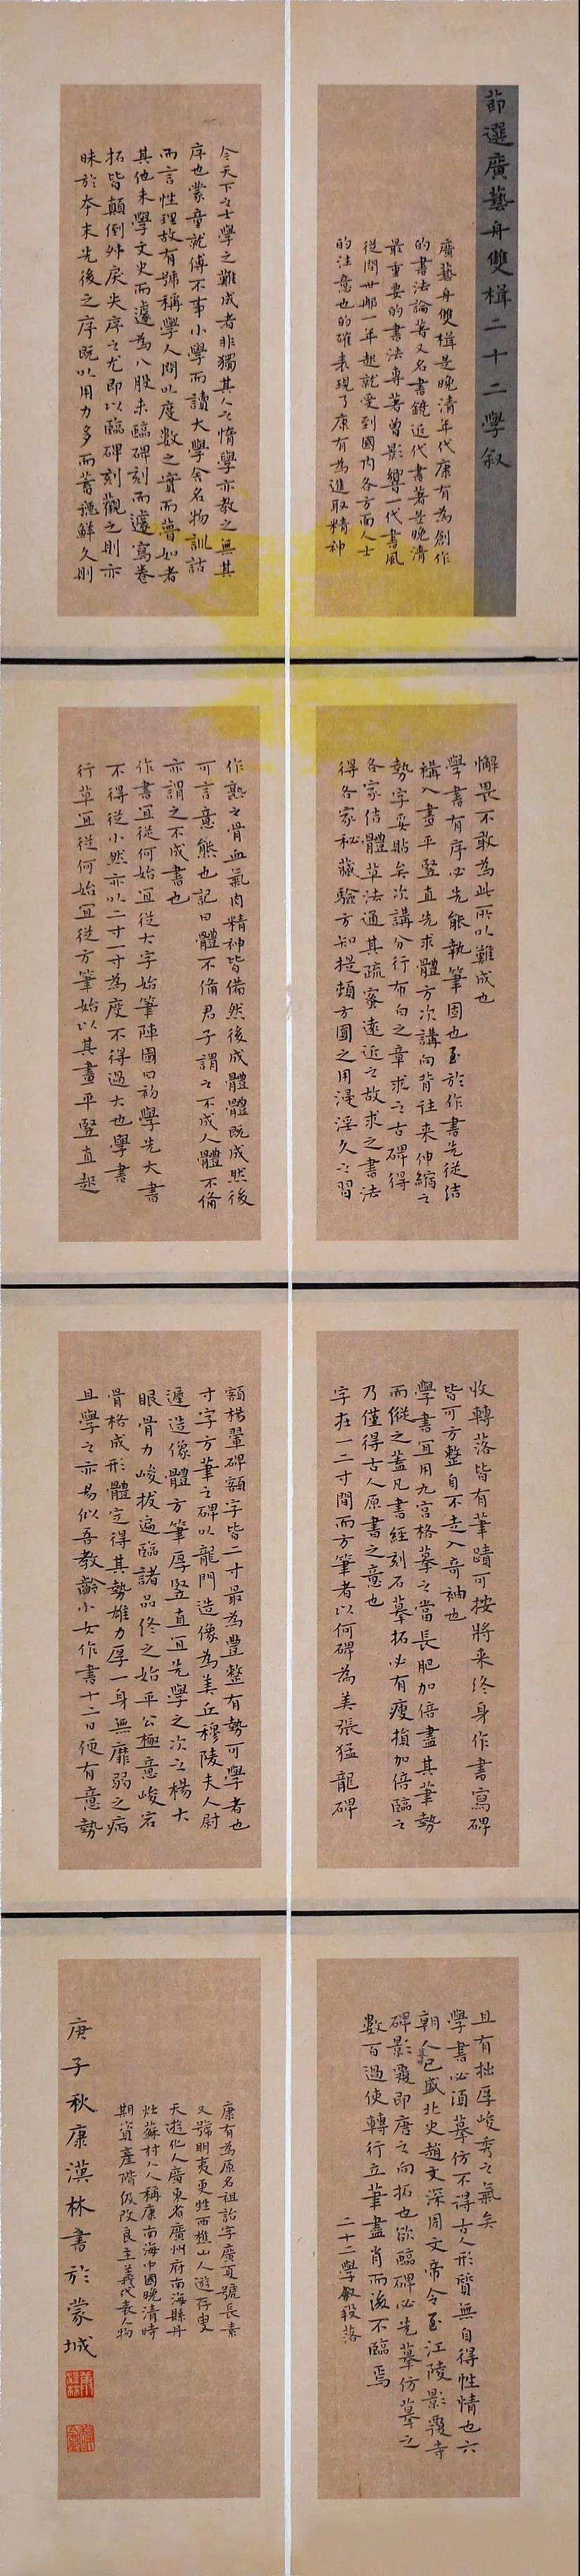 節選廣藝舟雙楫二十二學敘
廣藝舟雙楫是晚清年代康有為創作
的書法論著又名書鏡近代書著是晚清
最重要的書法專著曾影響一代書風
從問世那一年起就受到國內各方面人士
的注意也的確表現了康有為進取精神
今天下之士學之難成者非獨其人之惰學亦教之無其
序也蒙童就傅不事小學而讀大學舍名物訓詁
而言性理故有號稱學人問以度數之實而瞢如者
其他未學文史而遽為八股未臨碑刻而遽寫卷
拓皆顛倒舛戾失序之尤即以臨碑刻觀之則亦
昧於本末先後之序既以用力多而蓄德鮮久則
懈畏不敢為此所以難成也
學書有序必先能執筆固也至於作書先從結
構入畫平豎直先求體方次講向背往来伸縮之
勢字妥貼矣次講分行布白之章求之古碑得
各家結體草法通其疏密遠近之故求之書法
得各家秘藏驗方知提頓方圓之用浸淫久之習
作熟之骨血氣肉精神皆備然後成體體既成然後
可言意態也記曰體不備君子謂之不成人體不備
亦謂之不成書也
作書宜從何始宜從大字始筆陣圖曰初學先大書
不得從小然亦以二寸一寸為度不得過大也學書
行草宜從何始宜從方筆始以其畫平豎直起
收轉落皆有筆蹟可按將来終身作書寫碑
皆可方整自不走入奇衺也
學書宜用九宮格摹之當長肥加倍盡其筆勢
而縱之蓋凡書經刻石摹拓必有瘦損加倍臨之
乃僅得古人原書之意也
字在一二寸間而方筆者以何碑為美張猛龍碑
額楊翬碑額字皆二寸最為豐整有勢可學者也
寸字方筆之碑以龍門造像為美丘穆陵夫人尉
遲造像體方筆厚豎直宜先學之次之楊大
眼骨力峻拔遍臨諸品終之始平公極意峻宕
骨格成形體定得其勢雄力厚一身無靡弱之病
且學之亦易似吾教齡小女作書十二日便有意勢
且有拙厚峻秀之氣矣
學書必須摹仿不得古人形質無自得性情也六
朝人已盛北史趙文深周文帝令至江陵影覆寺
碑影覆即唐之向拓也欲臨碑必先摹仿摹之
數百過使轉行立筆盡肖而後不臨焉
二十二學敘段落
康有為原名祖詒字廣廈號長素
又號明夷更甡西樵山人遊存叟
天遊化人廣東省廣州府南海縣丹
灶蘇村人人稱康南海中國晚清時
期資產階級改良主義代表人物
庚子秋康漢林書於蒙城